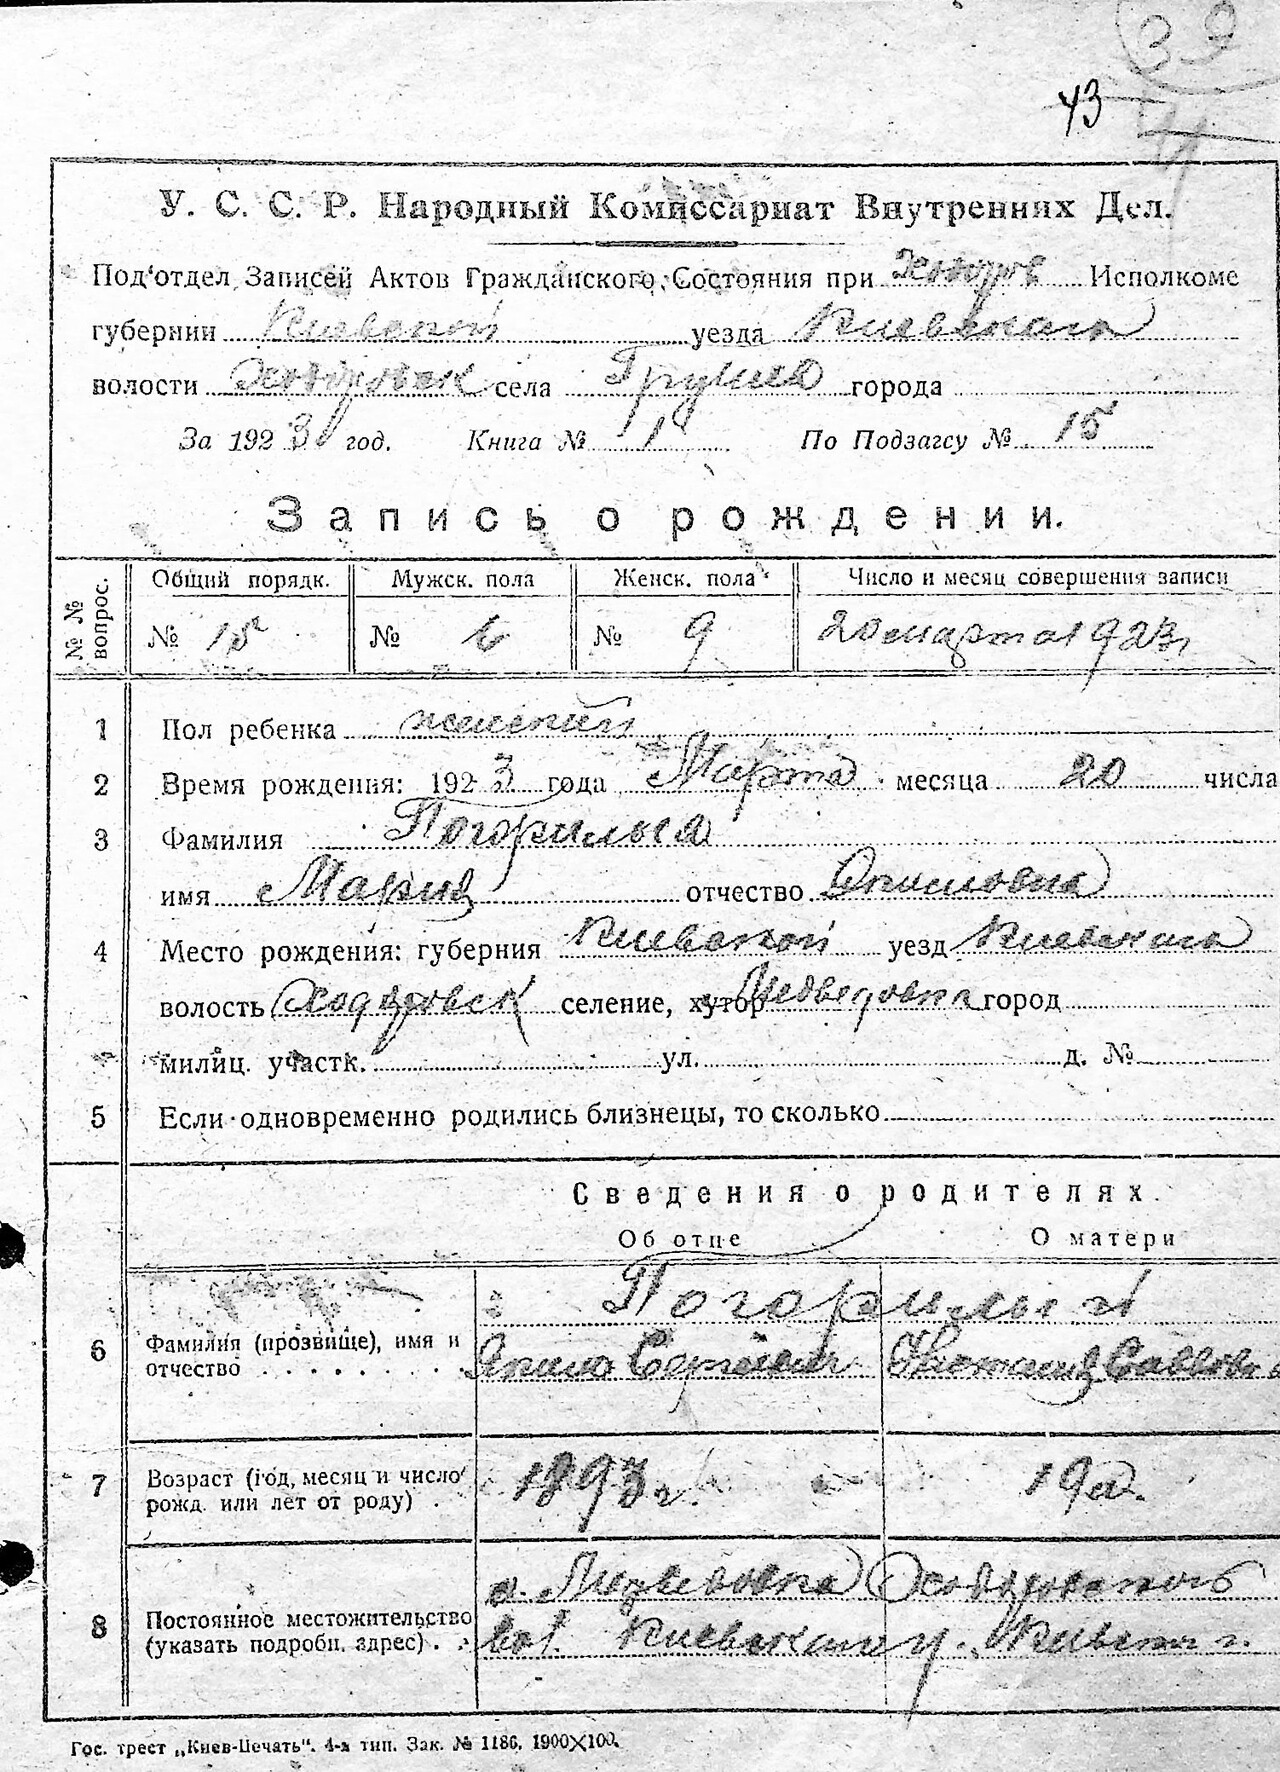 39
43
У. С. С. Р. Народный Комиссариат Внутренних Дел.
Под'отдел Записей Актов Гражданского Состояния при Ходоров Исполкоме
губернии Киевской уезда Киевскаго
волости Ходоровск села Грушев города
За 1923 год. Книга № 1 По Подзагсу № 15
Запись о рождении.
№ № вопрос. Общий порядк. Мужск. пола Женск. пола Число и месяц совершения записи
№ 15 № 6 № 9 20 марта 1923 г
1 Пол ребенка женский
2 Время рождения: 1923 года Марта месяца 20 числа
3 Фамилия Погорилыа
имя Мария отчество
4 Место рождения: губерния Киевской уезд Киевскаго
волость Ходоровск селение, хутор Медведовка город
милиц. участк. ул. д. №
5 Если одновременно родились близнецы, то сколько
Сведения о родителях.
Об отце О матери
Погорилый
6 Фамилия (прозвище), имя и
отчество Сергеевич Савовна
7 Возраст (год, месяц и число
рожд. или лет от роду) 1893 г. 19 л.
8 Постоянное местожительство
(указать подробн. адрес)
с. Медведовка Ходоровской
вол. Киевскаго у. Киевской г.
Гос. трест „Киев-Печать". 4-я тип. Зак. № 1186. 1900×100.